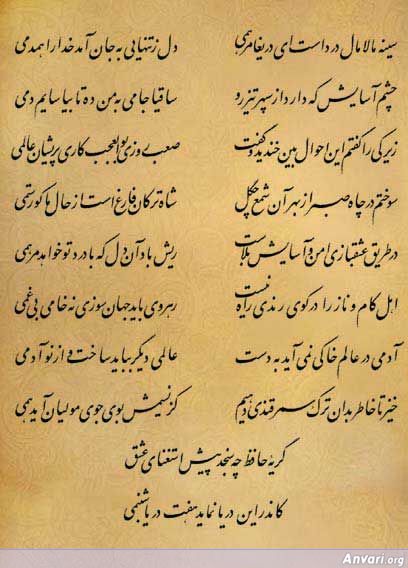 سینه مالامال درد است ای دریغا مرهمی    دل ز تنهایی به جان آمد خدا را همدمی
چشم آسایش که دارد از سپهر تیزرو    ساقیا جامی به من ده تا بیاسایم دمی
زیرکی را گفتم این احوال بین خندید و گفت    صعب روزی بوالعجب کاری پریشان عالمی
سوختم در چاه صبر از بهر آن شمع چگل    شاه ترکان فارغ است از حال ما کو رستمی
در طریق عشقبازی امن و آسایش بلاست    ریش باد آن دل که با درد تو خواهد مرهمی
اهل کام و ناز را در کوی رندی راه نیست    رهروی باید جهان سوزی نه خامی بی‌غمی
آدمی در عالم خاکی نمی‌آید به دست    عالمی دیگر بباید ساخت و از نو آدمی
خیز تا خاطر بدان ترک سمرقندی دهیم    کز نسیمش بوی جوی مولیان آید همی
گریهٔ حافظ چه سنجد پیش استغنای عشق
کاندر این دریا نماید هفت دریا شبنمی
Anvari.org